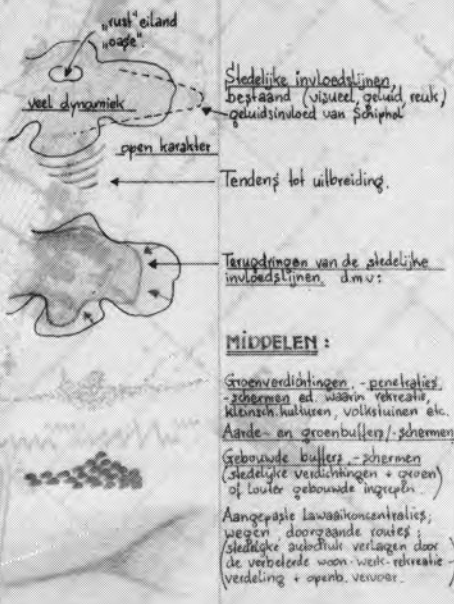 „rust" eiland
„oase".
veel dynamiek
open karakter
Stedelijke invloedslijnen,
bestaand (visueel, geluid, reuk)
geluidsinvloed van Schiphol
Tendens tot uitbreiding.
Terugdringen van de stedelijke
invloedslijnen d.m.v:
MIDDELEN :
Groenverdichtingen, -penetraties,
-schermen ed. waarin rekreatie,
kleinsch. kulturen, volkstuinen etc.
Aarde- en groenbuffers/-schermen
Gebouwde buffers, -schermen
(stedelijke verdichtingen + groen)
of louter gebouwde ingrepen.
Aangepaste lawaaikoncentraties;
wegen, doorgaande routes;
(stedelijke autodruk verlagen door
de verbeterde woon-werk-rekreatie-
verdeling + openb. vervoer.)